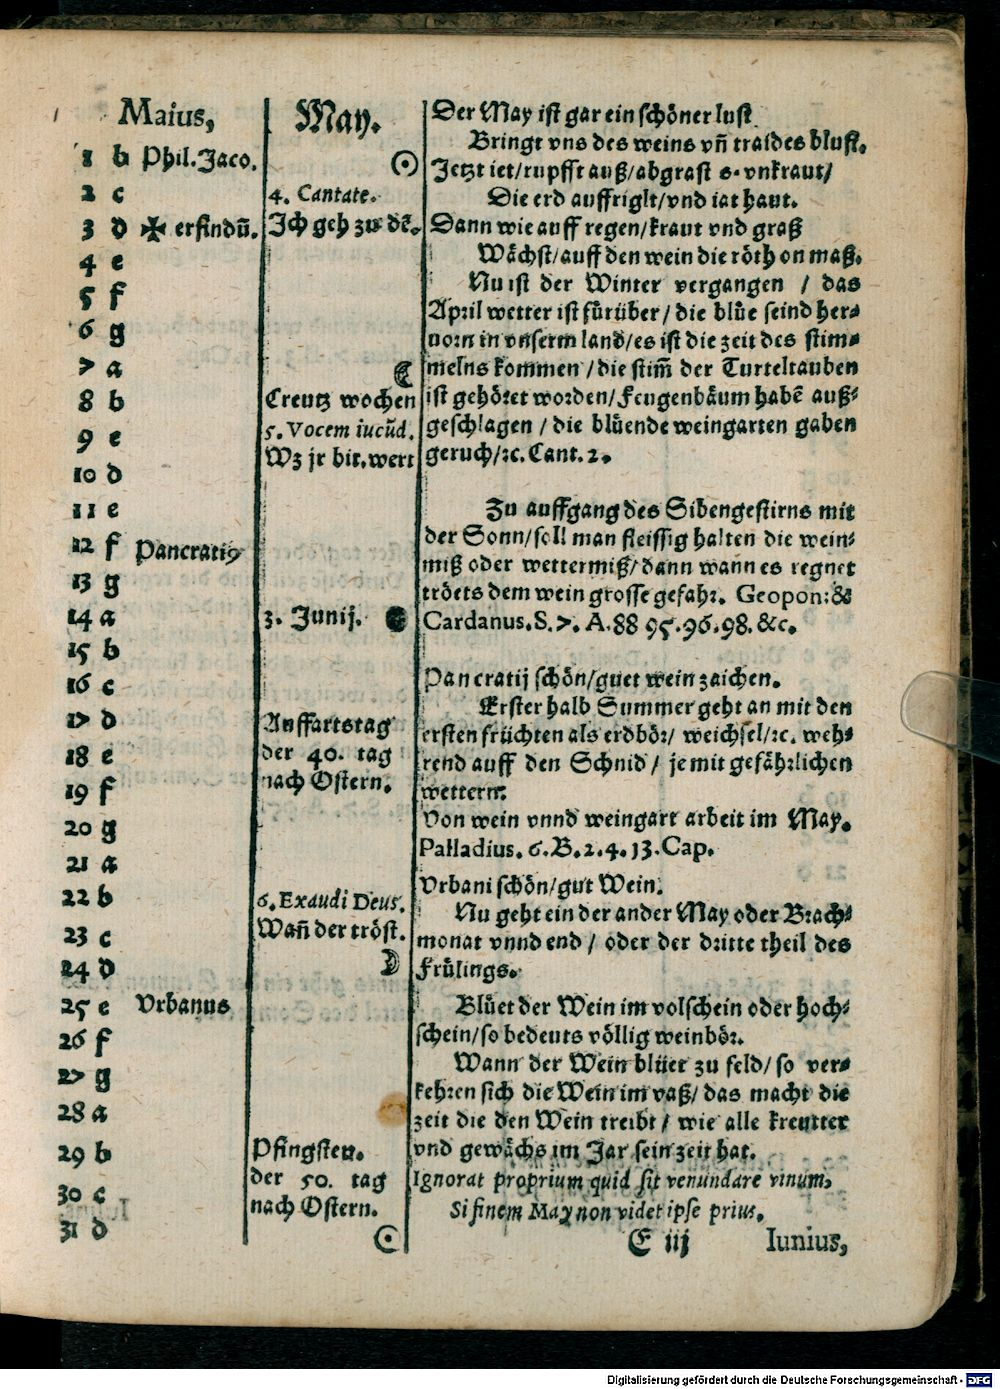 Maius,
1 b Phil. Jaco.
2 c
3 d ✠ erfindũ.
4 e
5 f
6 g
7 a
8 b
9 e
10 d
11 e
12 f Pancratiꝰ
13 g
14 a
15 b
16 c
17 d
18 e
19 f
20 g
21 a
22 b
23 c
24 d
25 e Vrbanus
26 f
27 g
28 a
29 b
30 c
31 d
May.
☉
4. Cantate.
Ich geh zu dẽ.
☾
Creutz wochen
5. Vocem iucũd.
Wz jr bit. wert
3. Junij.
Auffartstag
der 40. tag
nach Ostern.
6. Exaudi Deus.
Wañ der tröst.
☽
Pfingsten.
der 50. tag
nach Ostern.
Der May ist gar ein schöner lust
Bringt vns des weins vñ traides blust.
Jetzt iet/rupfft auß/abgrast s. vnkraut/
Die erd auffriglt/vnd iat haut.
Dann wie auff regen/kraut vnd graß
Wächst/auff den wein die röth on maß.
Nu ist der Winter vergangen / das
April wetter ist fürüber/die blüe seind her-
uorn in vnserm land/es ist die zeit des stim-
melns kommen /die stim̃ der Turteltauben
ist gehöret worden/Feugenbäum habẽ auß-
geschlagen / die blüende weingarten gaben
geruch/ꝛc. Cant. 2.
Zu auffgang des Sibengestirns mit
der Sonn/soll man fleissig halten die wein-
miß oder wettermiß/dann wann es regnet
tröets dem wein grosse gefahr. Geopon: &
Cardanus. S. 7. A. 88 95. 96. 98. &c.
Pancratij schön/guet wein zaichen.
Erster halb Summer geht an mit den
ersten früchten als erdbör/ weichsel/ꝛc. weh-
rend auff den Schnid / je mit gefährlichen
wettern:
Von wein vnnd weingart arbeit im May.
Palladius. 6. B. 2. 4. 13. Cap.
Vrbani schön/gut Wein.
Nu geht ein der ander May oder Brach-
monat vnnd end / oder der dritte theil des
Frülings.
Blüet der Wein im volschein oder hoch-
schein/so bedeuts völlig weinbör.
Wann der Wein blüet zu feld/ so ver-
kehren sich die Wein im vaß/ das macht die
zeit die den Wein treibt / wie alle kreutter
vnd gewächs im Jar sein zeit hat.
Ignorat proprium quid sit venundare vinum,
Si finem May non videt ipse prius.
E iij Iunius,
Digitalisierung gefördert durch die Deutsche Forschungsgemeinschaft - DFG